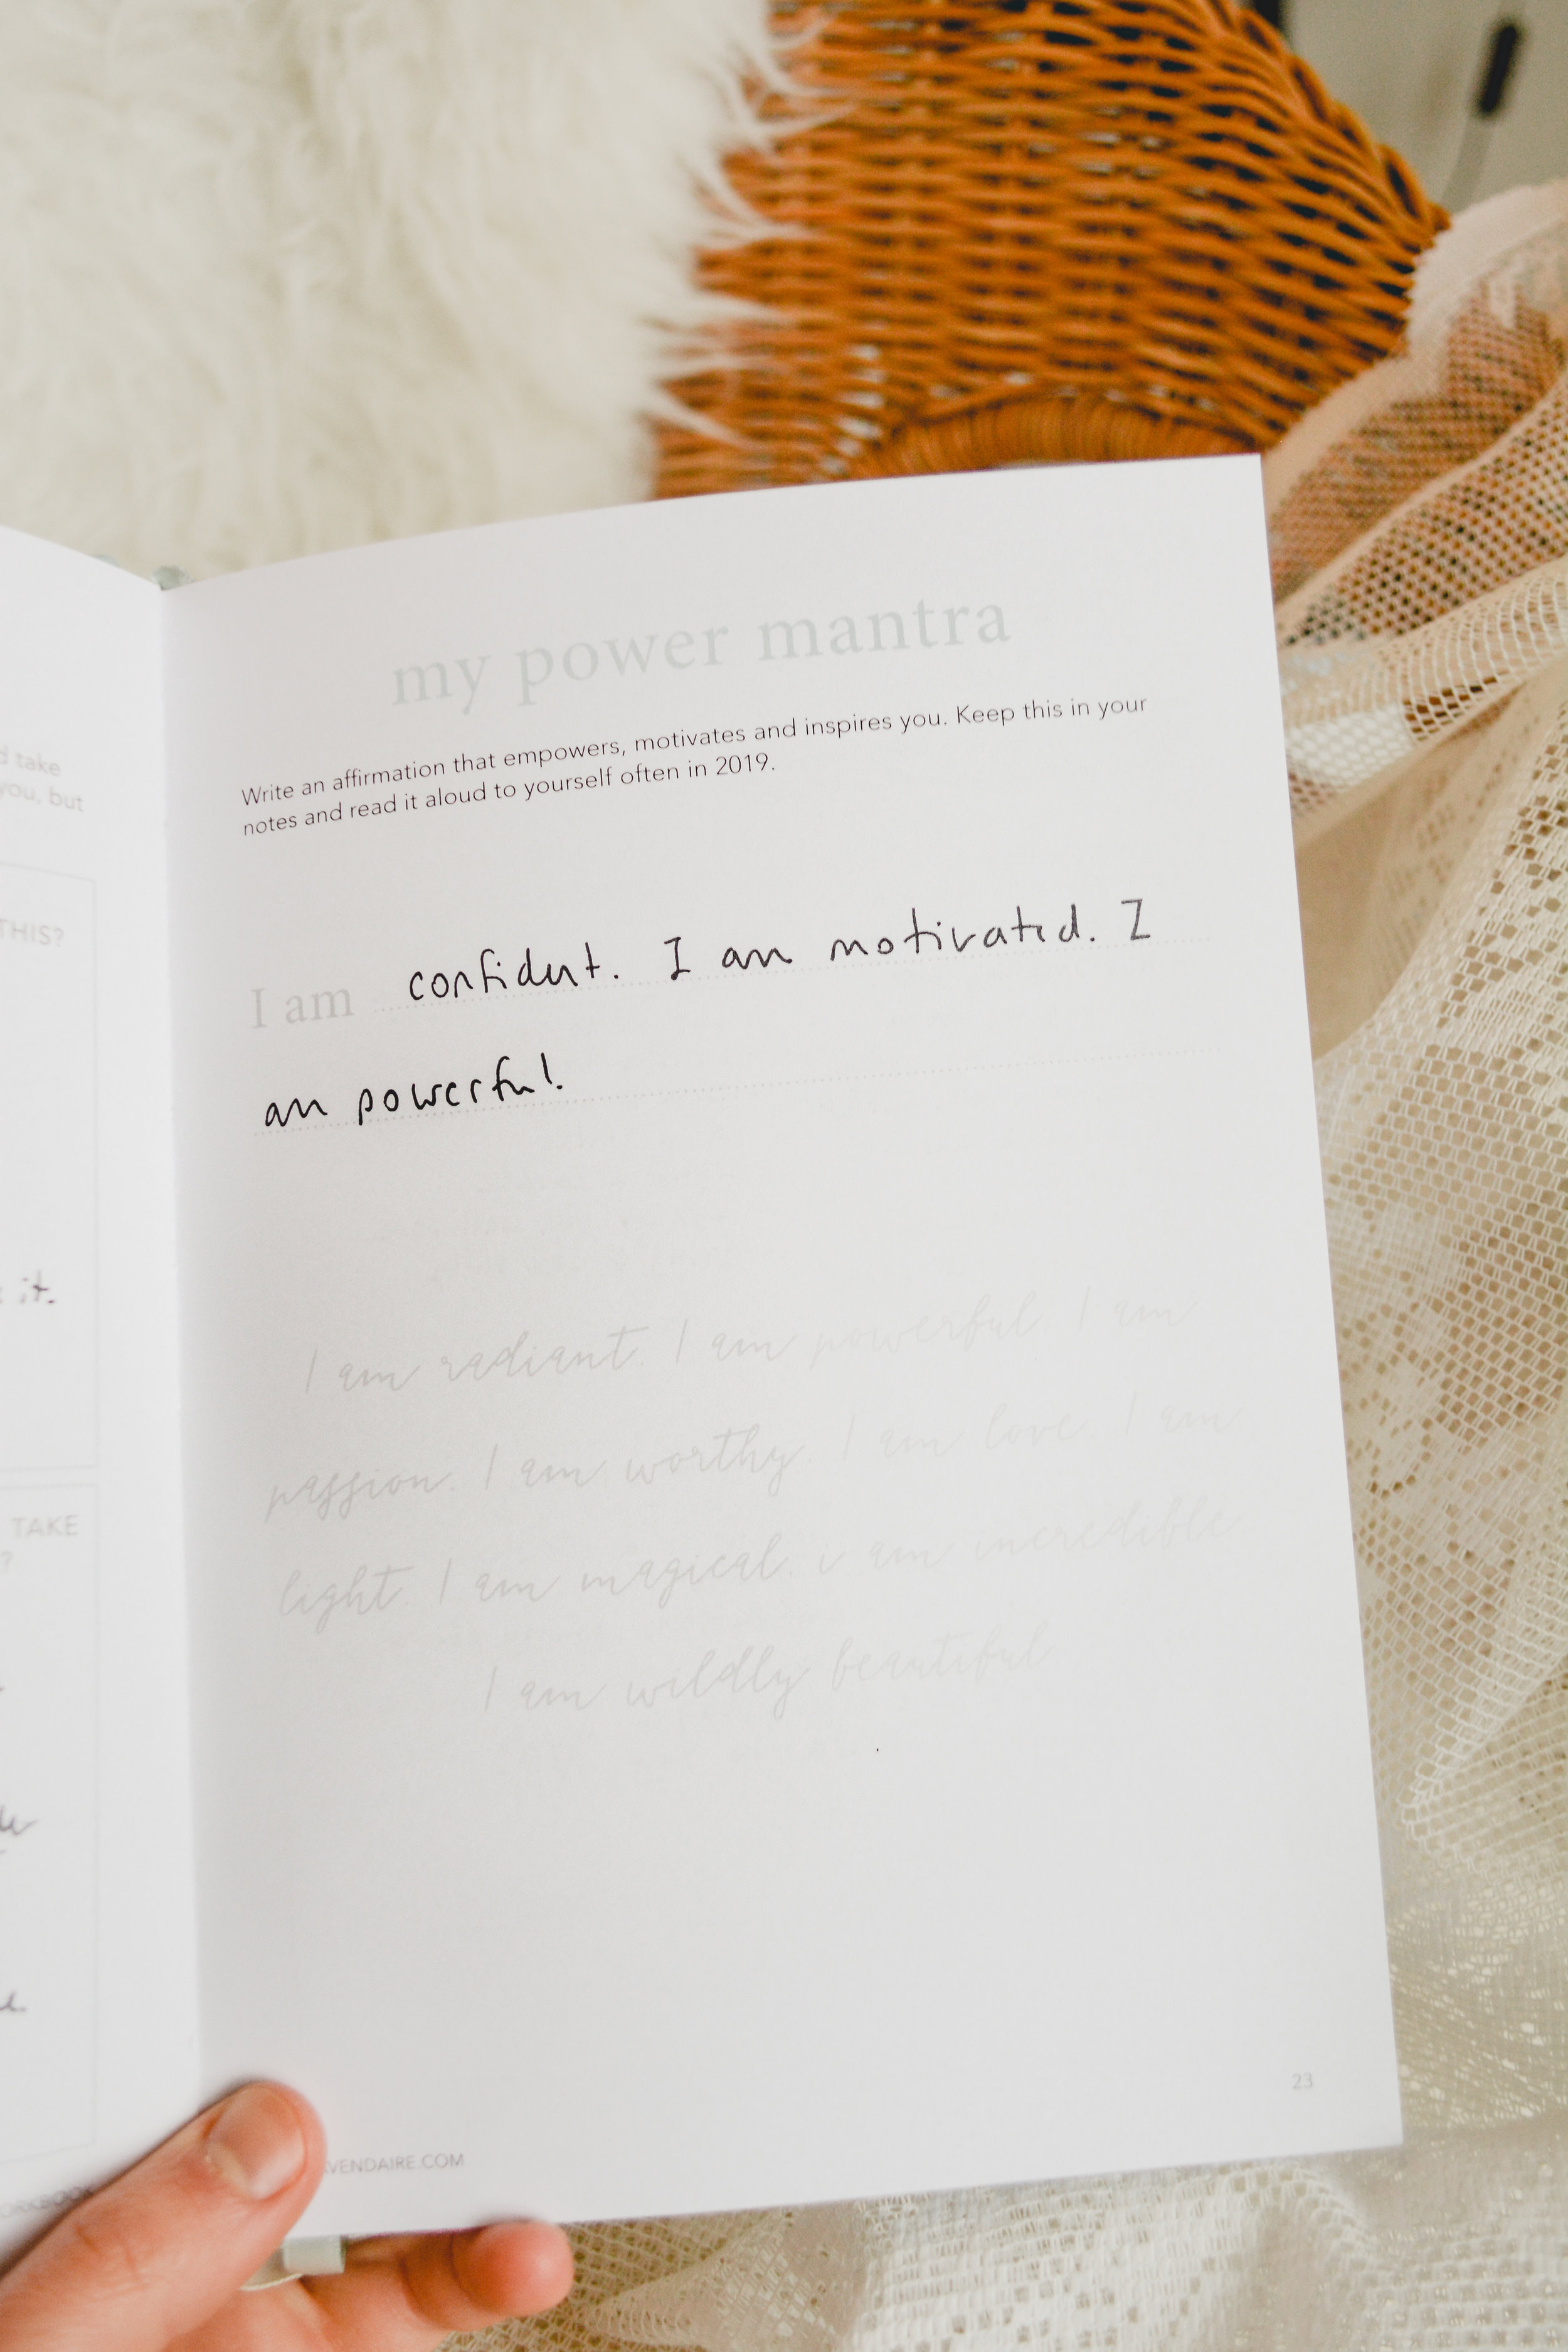 d take
you, but
THIS?
it.
TAKE
?
my power mantra
Write an affirmation that empowers, motivates and inspires you. Keep this in your
notes and read it aloud to yourself often in 2019.
I am confident. I am motivated. I
am powerful.
I am radiant. I am powerful. I am
passion. I am worthy. I am love. I am
light. I am magical. i am incredible.
I am wildly beautiful.
23
VENDAIRE.COM